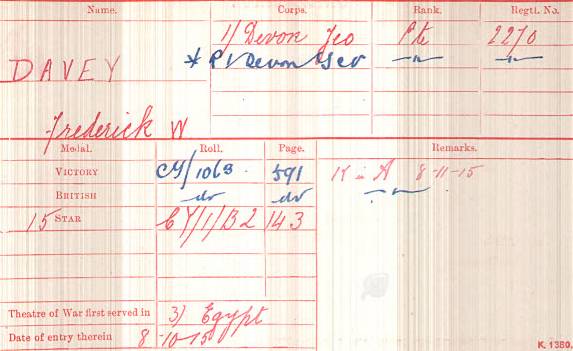 Name. Corps. Rank. Regtl. No.
1/ Devon Yeo Pte 2270
DAVEY * R 1/Devon Yeo —〃— —〃—
Frederick W
Medal. Roll. Page. Remarks.
VICTORY CY/106B 591 K in A 8-11-15
BRITISH do do —〃—
15 STAR CY/1/B2 143
Theatre of War first served in 3) Egypt
Date of entry therein 8-10-15
K. 1380.